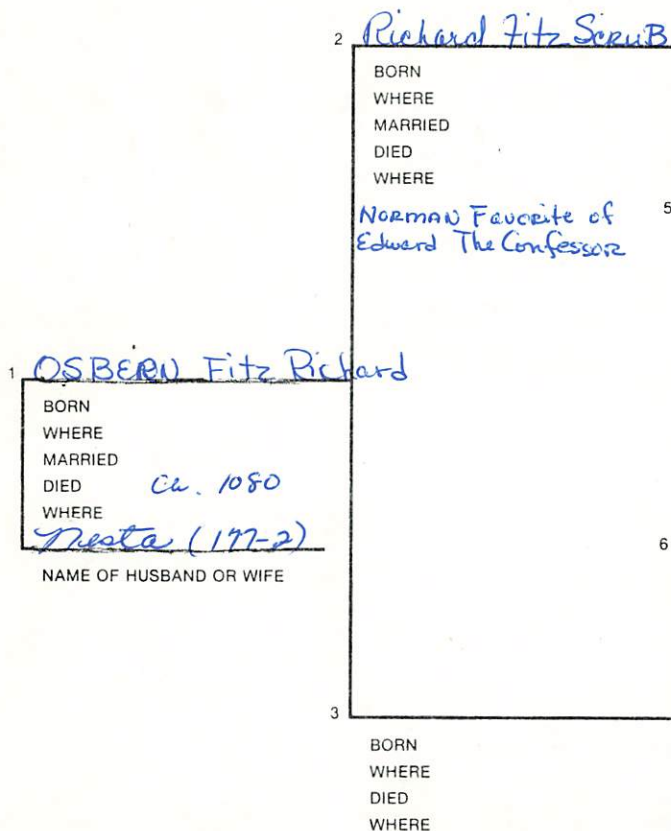 2 Richard Fitz Scrub
BORN
WHERE
MARRIED
DIED
WHERE
NORMAN Favorite of
Edward The Confessor
5
1 OSBERN Fitz Richard
BORN
WHERE
MARRIED
DIED Ca. 1080
WHERE
Nesta (177-2)
NAME OF HUSBAND OR WIFE
6
3
BORN
WHERE
DIED
WHERE